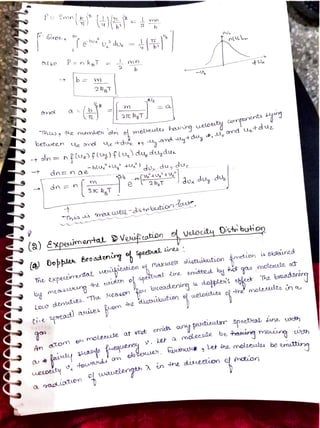 ∞
Since, ∫ e^-bv_x² v_x² dv_x = 1/2 [π/b³]^1/2
Also P = n k_B T = 1/2 mn/b
→ b = m/2k_BT
and a = [b/π]^3/2 = [m/2πk_BT]^3/2 = a
Thus, the number dn of molecules having velocity components lying
between v_x and v_x+dv_x, v_y and v_y+dv_y, v_z and v_z+dv_z
→ dn = n f(v_x) f(v_y) f(v_z) dv_x dv_y dv_z
→ dn = n a e^-b(v_x²+v_y²+v_z²) dv_x dv_y dv_z
→ dn = n [m/2πk_BT]^3/2 e^-m(v_x²+v_y²+v_z²)/2k_BT dv_x dv_y dv_z
This is maxwell-distribution-law.
(2) Experimental Verification of Velocity Distribution
(a) Doppler Broadening of Spectral Lines:
The experimental verification of Maxwell distribution function is obtained
by measuring the width of spectral line emitted by hot gas molecule at
low densities. The reason for broadening is doppler's effect. The broadening
(i.e spread) arises from the distribution of velocities of the molecules in a
gas
An atom or molecule at rest emits any particular spectral line with
a fairly sharp frequency ν. Let a molecule be moving with
velocity v_x towards an observer. , let the molecules be emitting
a radiation of wavelength λ in the direction of motion